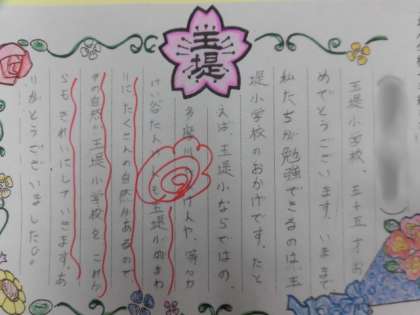 玉堤
玉堤小学校、五十五才お
めでとうございます。いままで
私たちが勉強できるのは、玉
堤小学校のおかげです。たと
えば、玉堤小ならではの、
多摩川けんや、等々力
けい谷たんも玉堤小のまわ
りにたくさんの自然があるので
その自然と玉堤小学校を、これか
らもきれいにしていきます。あ
りがとうございました。